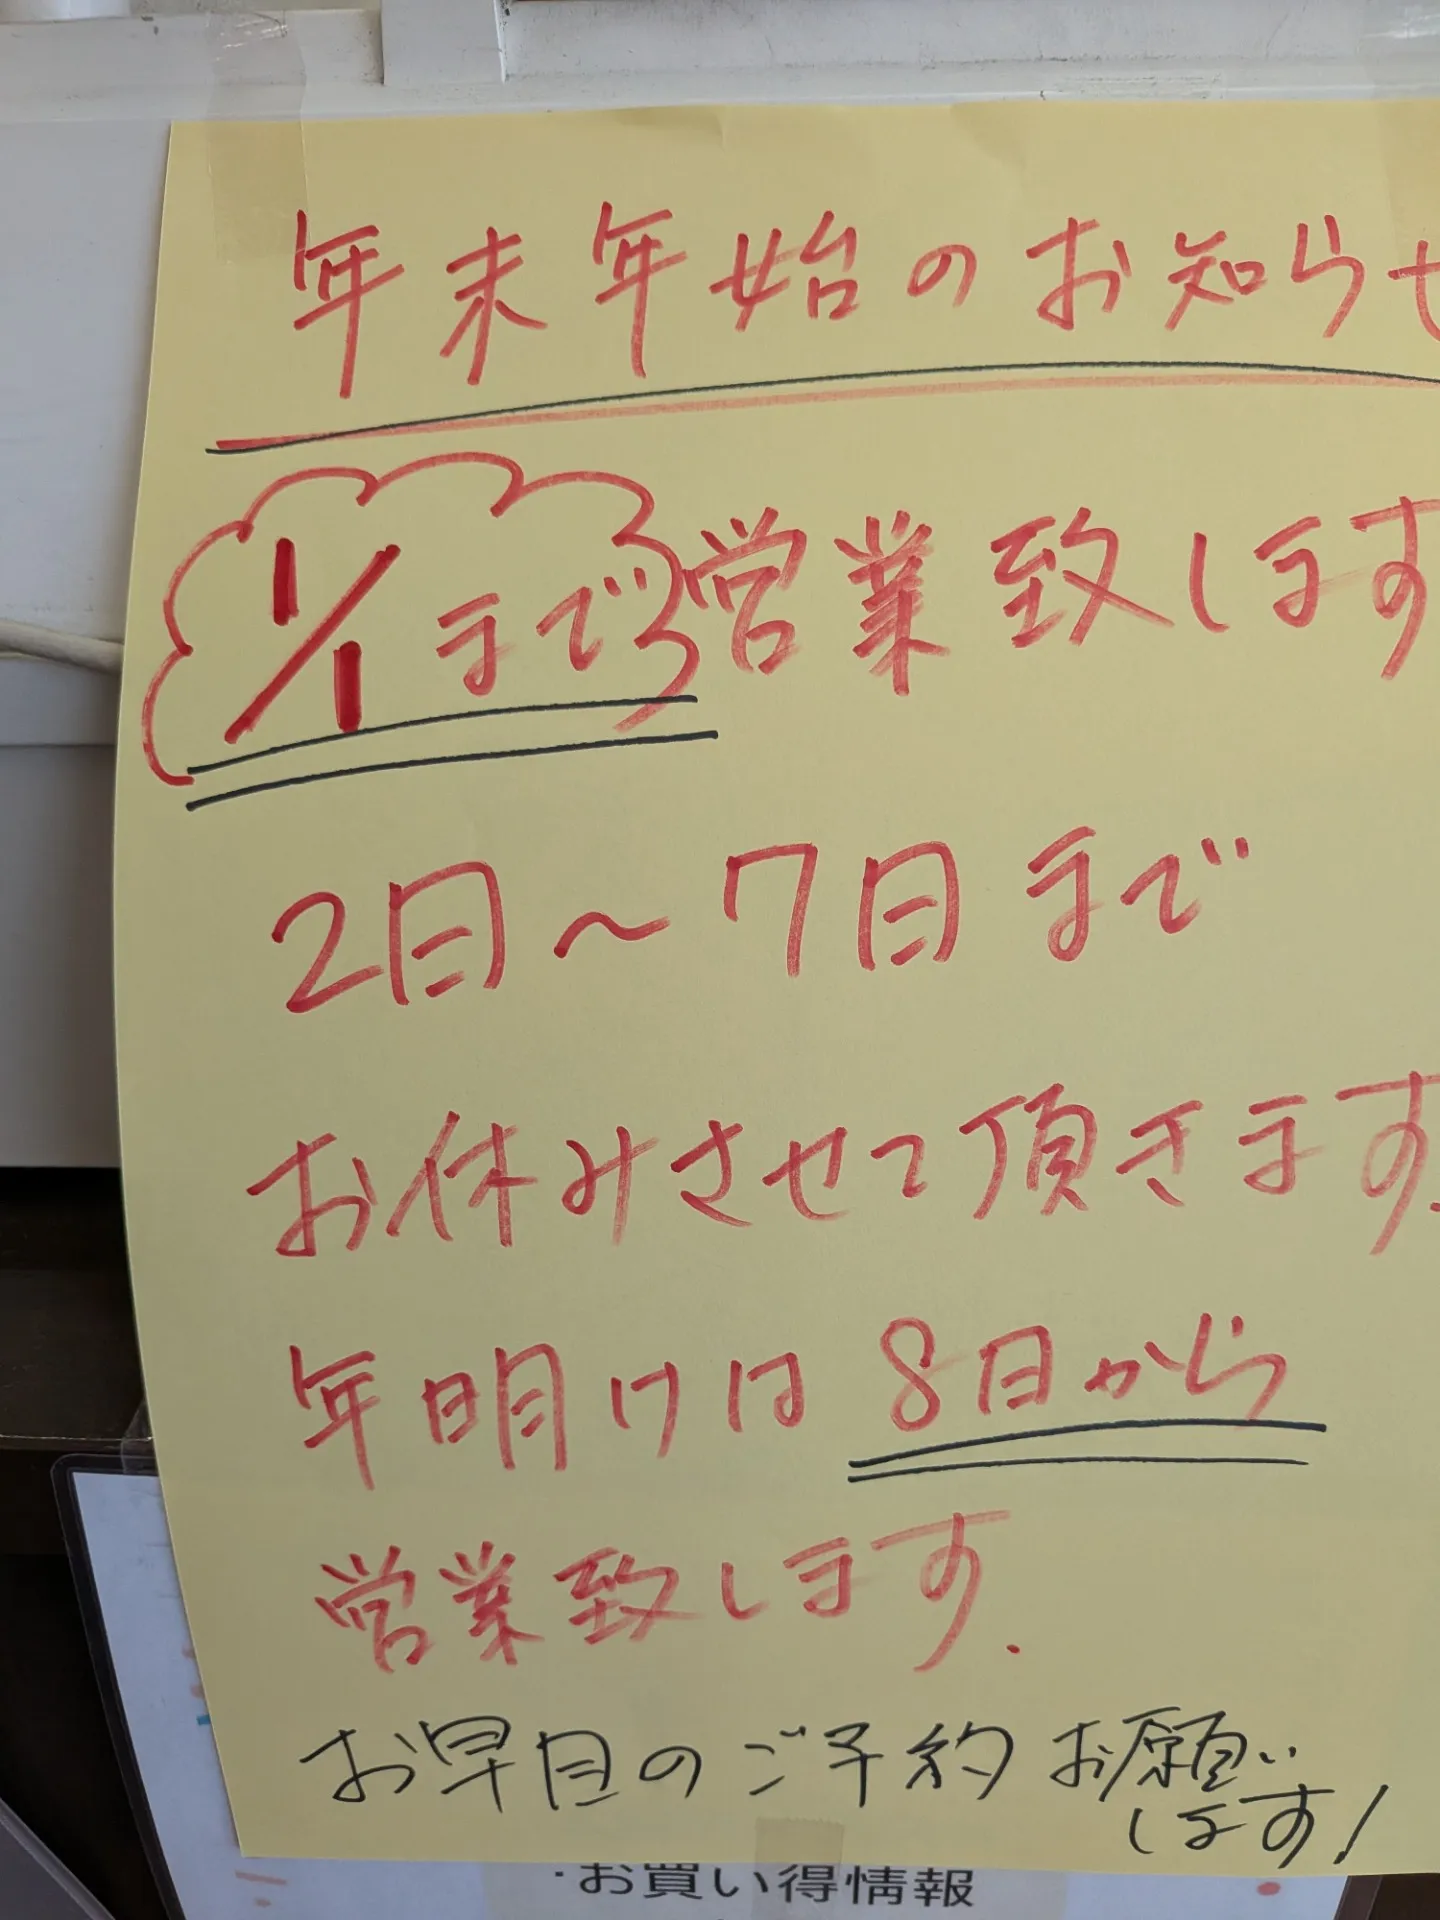 年末年始のお知らせ
1/1まで営業致します
2日〜7日まで
お休みさせて頂きます.
年明けは8日から
営業致します.
お早目のご予約お願い
します!
・お買い得情報